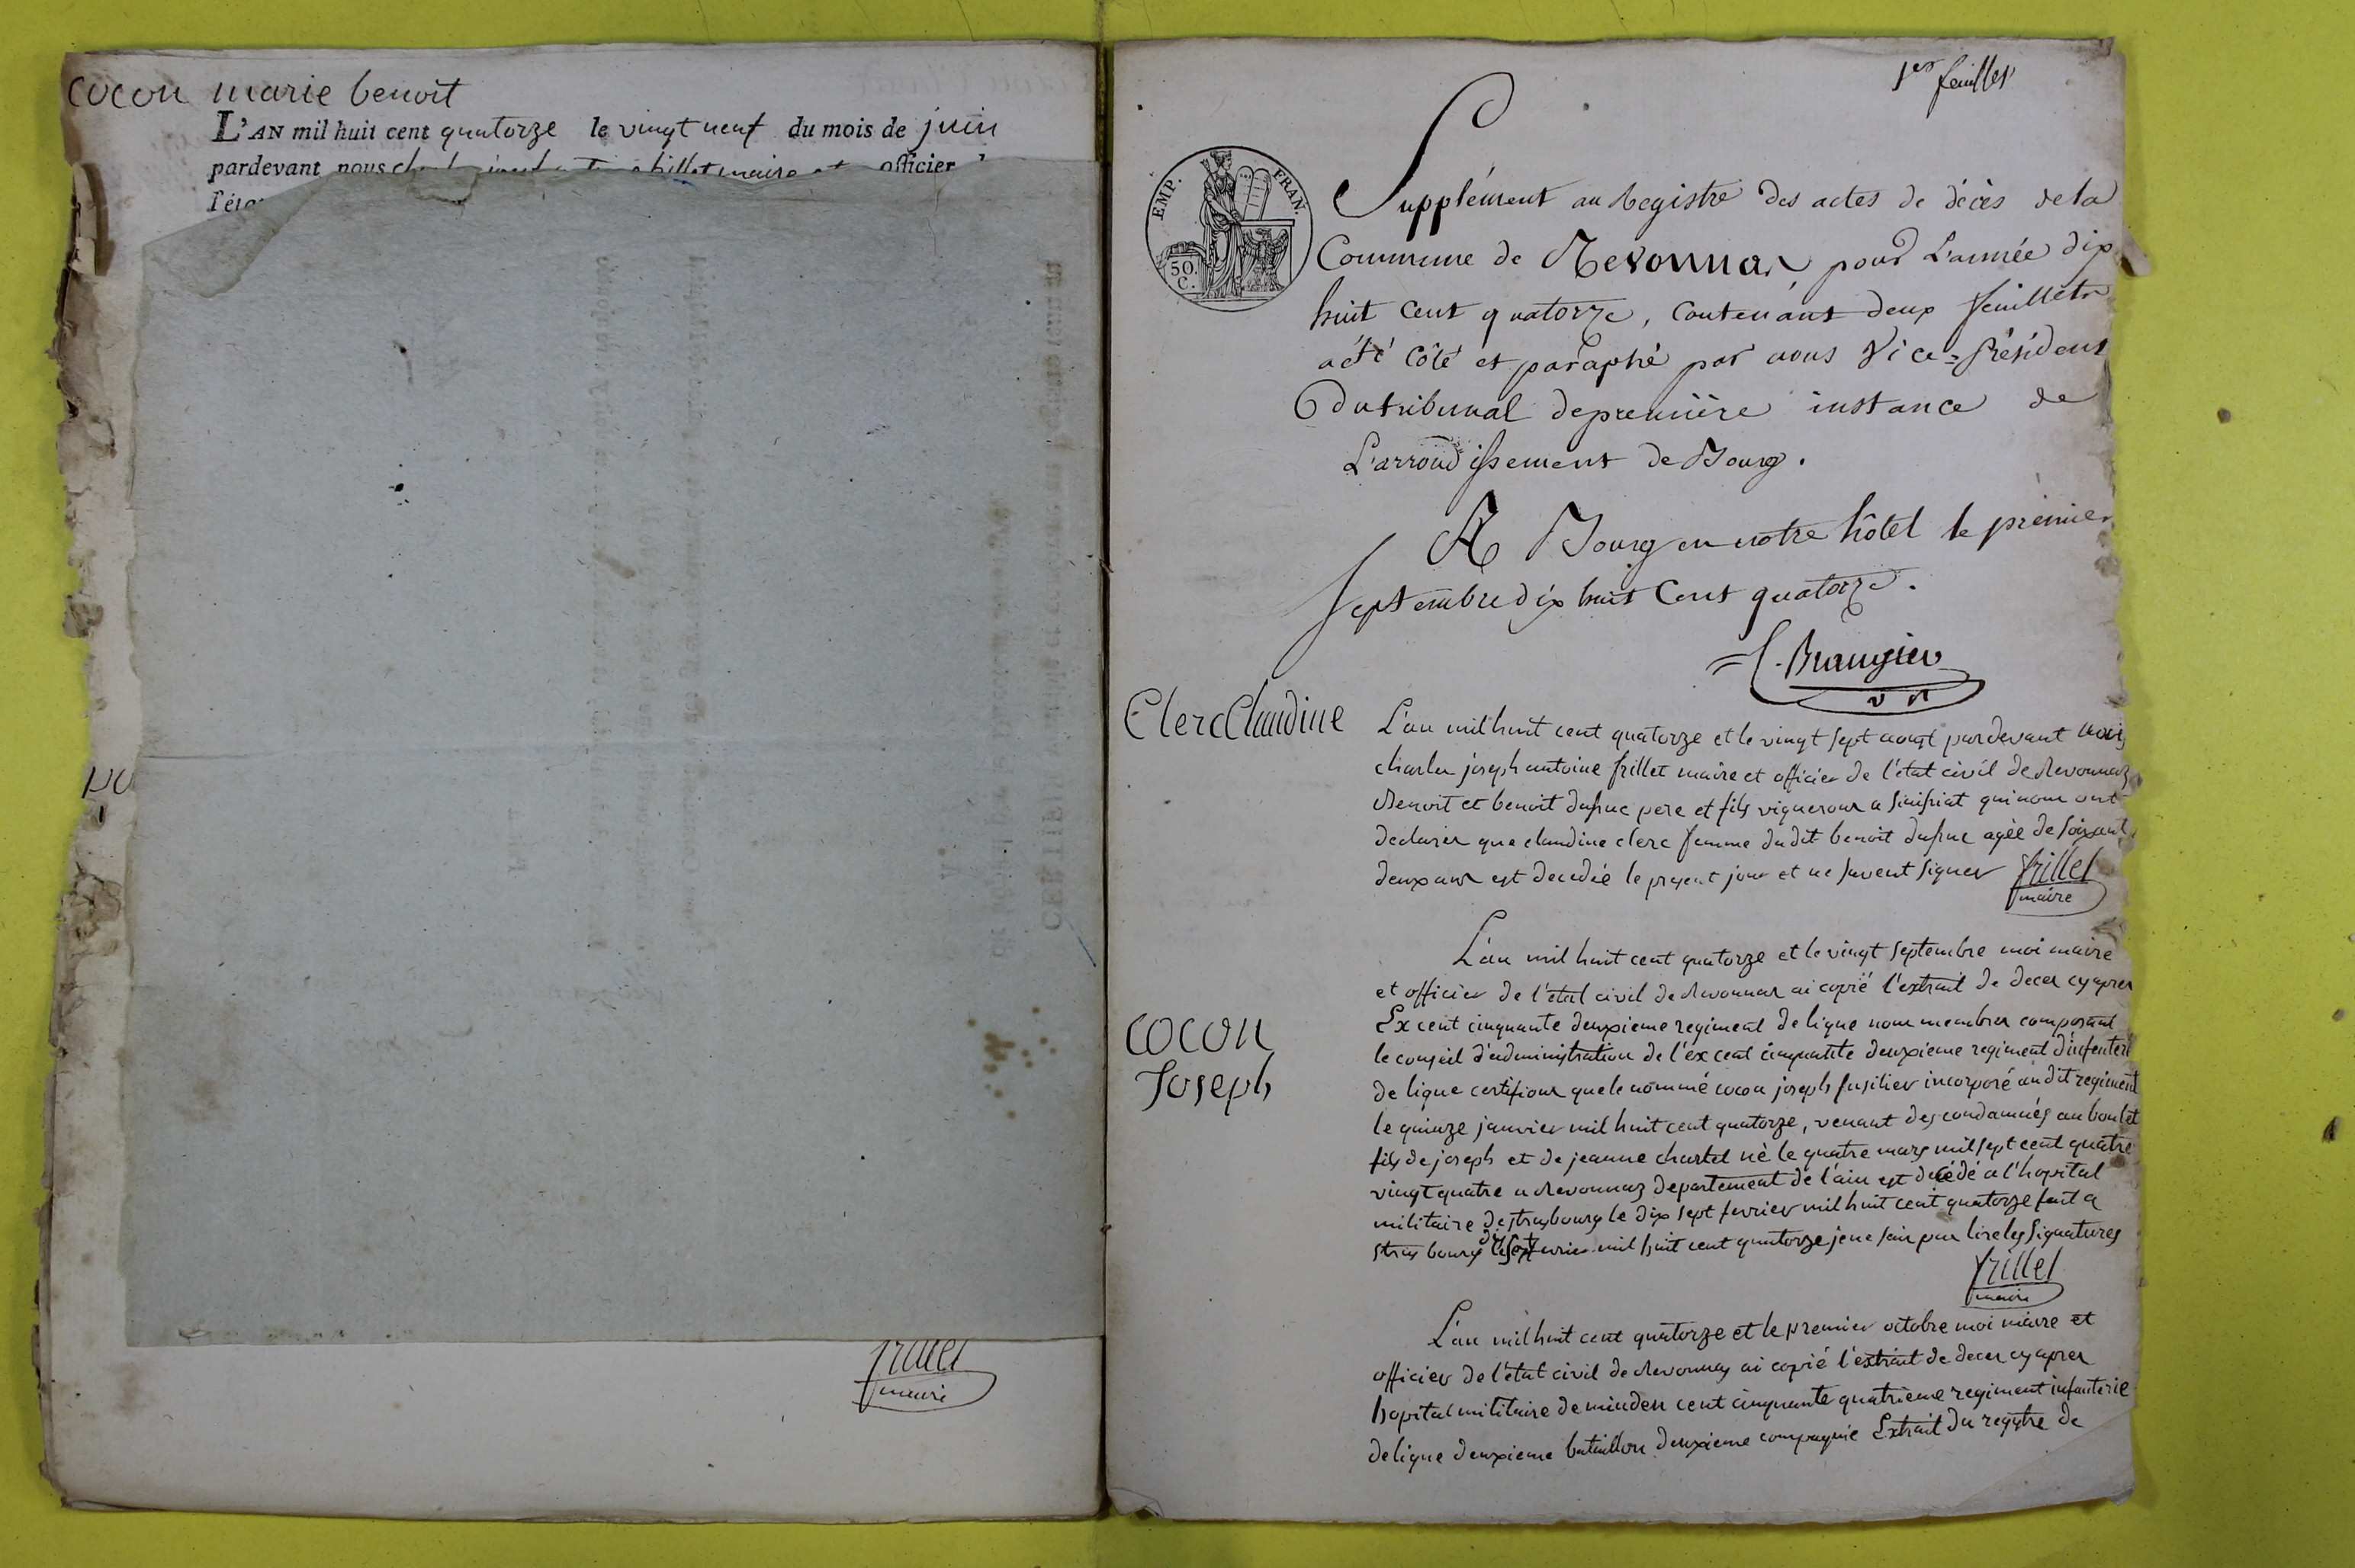 cocon marie benoit
L'AN mil huit cent quatorze le vingt neuf du mois de juin
pardevant nous frillet maire et officier
l'état
frillet
maire
1er feuillet
EMP. FRAN.
50. C.
Supplément au Registre des actes de décès de la
Commune de Revonnas, pour L'année dix
huit cent quatorze, Contenant deux feuillets
a été Côté et paraphé par nous Vice-Président
Du tribunal de première instance de
L'arrondissement de Bourg.
A Bourg en notre hôtel le premier
Septembre dix huit Cent quatorze.
Clerc Claudine
L'an mil huit cent quatorze et le vingt sept aougt pardevant moi
charles joseph antoine frillet maire et officier de l'état civil de Revonnaz
Benoit et benoit dufuc pere et fils vignerons a qui nous ont
declarés que claudine clerc femme du dit benoit dufuc agèe de soixant
deux ans est decedèe le present jour et ne savent signer frillet
maire
L'an mil huit cent quatorze et le vingt septembre moi maire
et officier de l'état civil de Revonnas ai copié l'extrait de deces cy apres
COCON
Joseph
Ex cent cinquante deuxieme regiment de ligne nous membres composant
le conseil d'administration de l'ex cent cinquante deuxieme regiment d'infenteri
de ligne certifions que le nommé cocon joseph fusilier incorporé au dit regiment
le quinze janvier mil huit cent quatorze, venant des condamnés au boulet
fils de joseph et de jeanne chartel nè le quatre mars mil sept cent quatre
vingt quatre a Revonnaz departement de l'ain est decédé a l'hopital
militaire de strasbourg le dix sept fevrier mil huit cent quatorze fait a
strasbourg le dix sept fevrier mil huit cent quatorze je ne sais pas lire les signatures
frillet
maire
L'an mil huit cent quatorze et le premier octobre moi maire et
officier de l'état civil de Revonnas ai copié l'extrait de deces cy apres
hopital militaire de minden cent cinquante quatrieme regiment infanterie
de ligne deuxieme bataillon deuxieme compagnie Extrait du regytre de